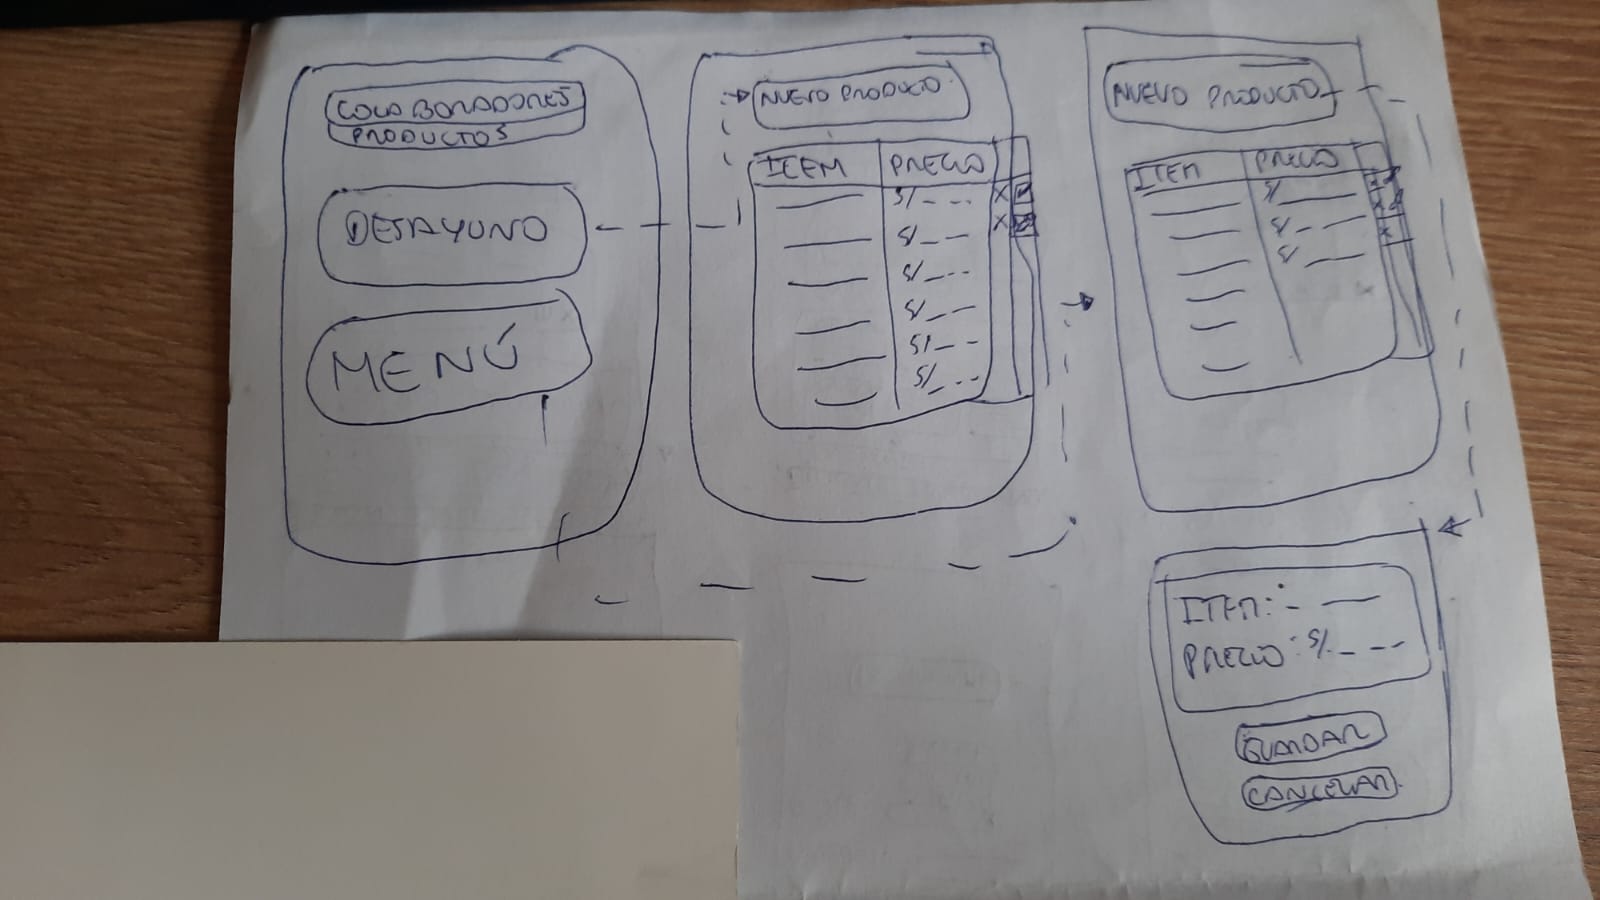 COLABORADORES
PRODUCTOS
DESAYUNO
MENÚ
NUEVO PRODUCTO
ITEM PRECIO
S/
S/
S/
S/
S/
S/
NUEVO PRODUCTO
ITEM PRECIO
S/
S/
S/
ITEM:
PRECIO: S/.
GUARDAR
CANCELAR